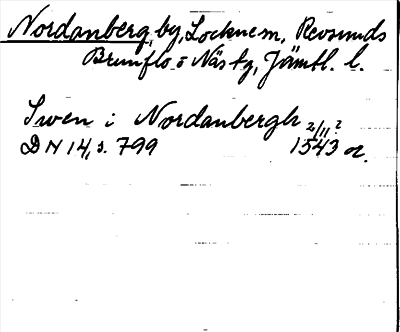 Nordanberg, by, Lockne sn, Revsunds
Brunflo o Näs tg, Jämtl. l.
Swen i Nordanbergh 2/11 ?
DN 14, s. 799 1543 or.